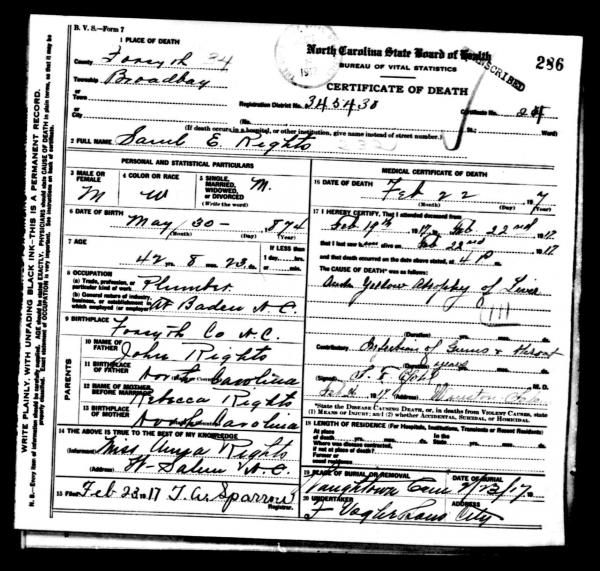 B. V. S.—Form 7
1 PLACE OF DEATH
County Forsyth 34
Township Broadbay
or
Town
or
City
North Carolina State Board of Health
BUREAU OF VITAL STATISTICS
CERTIFICATE OF DEATH
TRANSCRIBED
286
1917
Registration District No. 345430
Certificate No.
(No. St.; Ward)
(If death occurred in a hospital, or other institution, give name instead of street number.)
2 FULL NAME Saml E. Rights
PERSONAL AND STATISTICAL PARTICULARS
3 MALE OR FEMALE M
4 COLOR OR RACE W
5 SINGLE, MARRIED, WIDOWED, or DIVORCED (Write the word) M.
6 DATE OF BIRTH May 30 - 874
(Month) (Day) (Year)
7 AGE 42 yrs. 8 mos. 23 ds.
If LESS than 1 day, hrs. or min.
8 OCCUPATION
(a) Trade, profession, or particular kind of work Plumber
(b) General nature of industry, business, or establishment in which employed (or employer) At Baden N.C.
9 BIRTHPLACE Forsyth Co N.C.
PARENTS
10 NAME OF FATHER John Rights
11 BIRTHPLACE OF FATHER North Carolina
12 NAME OF MOTHER BEFORE MARRIAGE Rebecca Rights
13 BIRTHPLACE OF MOTHER North Carolina
14 THE ABOVE IS TRUE TO THE BEST OF MY KNOWLEDGE
(Informant) Miss Anna Rights
(Address) W-Salem N.C.
15 Filed Feb 23 1917 T. W. Sparrow
Registrar.
MEDICAL CERTIFICATE OF DEATH
16 DATE OF DEATH Feb 22 1917
(Month) (Day) (Year)
17 I HEREBY CERTIFY, That I attended deceased from
Feb 19th 1917, to Feb 22nd 1917
that I last saw him alive on Feb 22nd 1917
and that death occurred on the date above stated, at 4 P. m.
The CAUSE OF DEATH* was as follows:
Acute Yellow Atrophy of Liver
(Duration) yrs. mos. ds.
Contributory Infection of Gums & throat
(Duration) yrs. mos. ds.
(Signed) M. D.
Feb 1917 (Address) Winston-Salem
*State the DISEASE CAUSING DEATH, or, in deaths from VIOLENT CAUSES, state (1) MEANS OF INJURY; and (2) whether ACCIDENTAL, SUICIDAL, or HOMICIDAL.
18 LENGTH OF RESIDENCE (For Hospitals, Institutions, Transients or Recent Residents)
At place of death yrs. mos. ds. In the State yrs. mos. ds.
Where was disease contracted, if not at place of death?
Former or usual residence
19 PLACE OF BURIAL OR REMOVAL Waughtown Cem
DATE OF BURIAL 2/23/17
20 UNDERTAKER F Vogler & Sons
ADDRESS City
WRITE PLAINLY, WITH UNFADING BLACK INK—THIS IS A PERMANENT RECORD.
N. B.—Every item of information should be carefully supplied. AGE should be stated EXACTLY. PHYSICIANS should state CAUSE OF DEATH in plain terms, so that it may be properly classified. Exact statement of OCCUPATION is very important. See instructions on back of certificate.